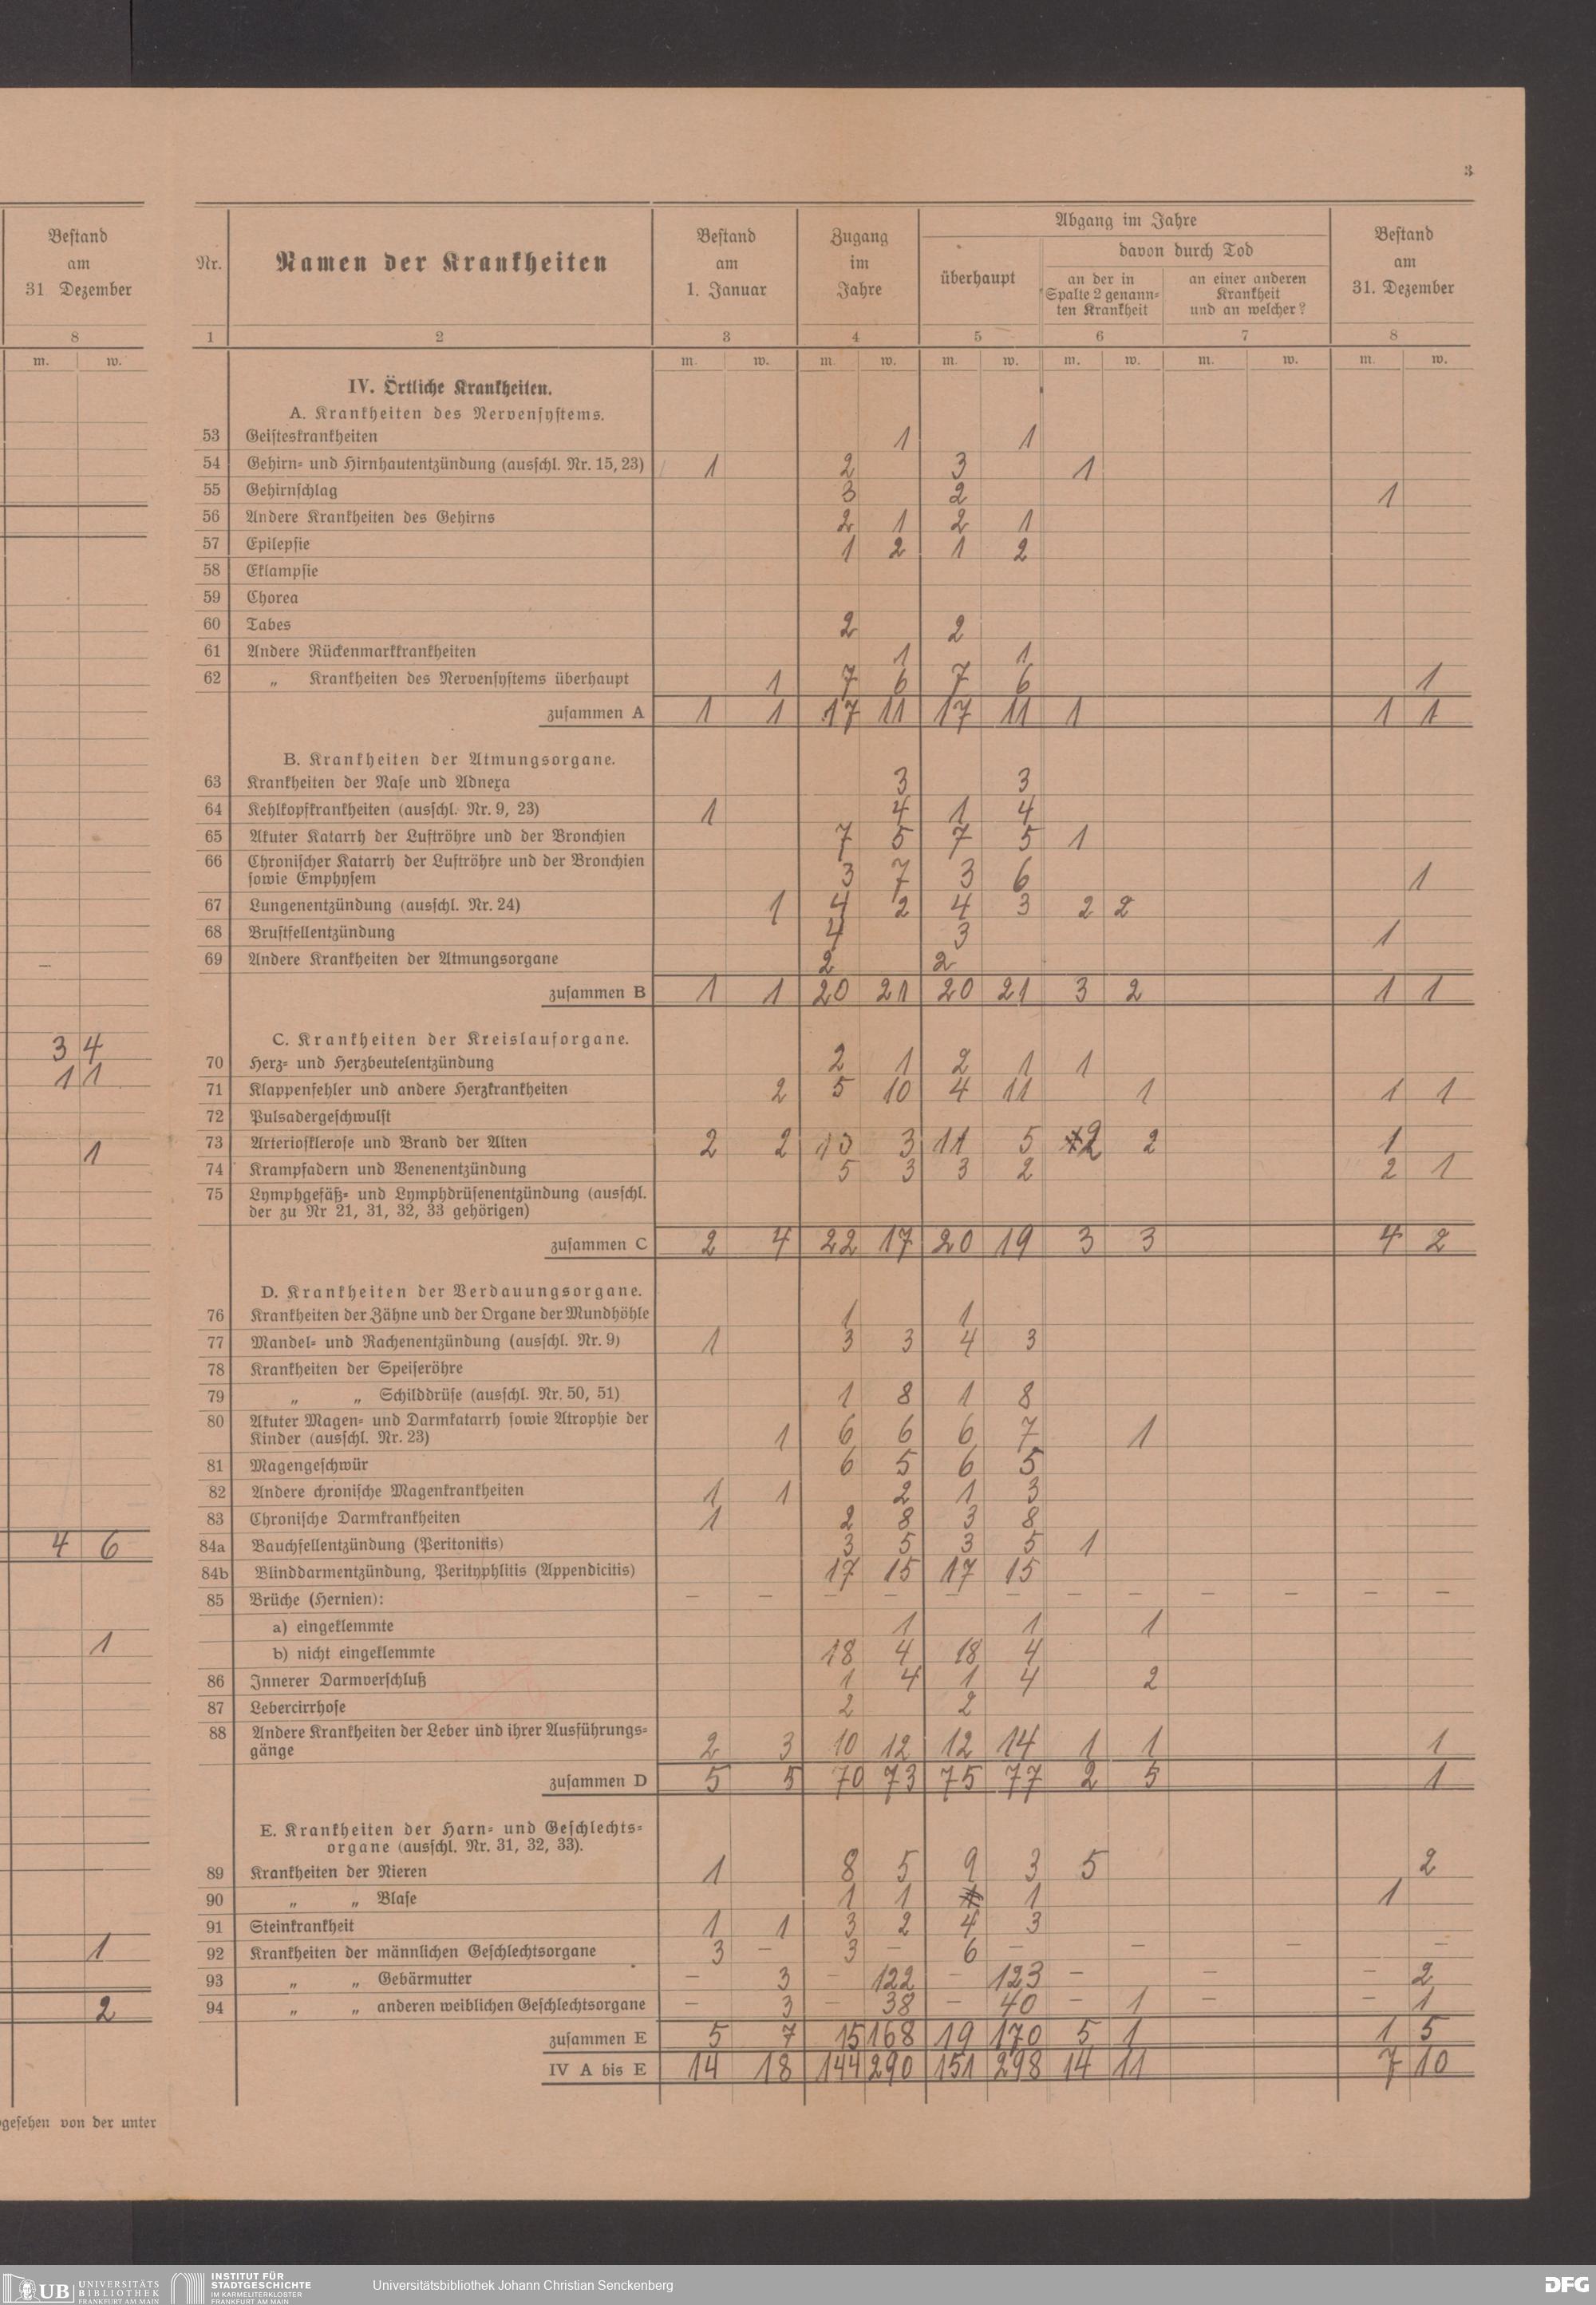 3
Bestand am 31 Dezember
8
m. w.
–
3 4
1 1
1
4 6
1
1
2
gesehen von der unter
Nr. Namen der Krankheiten Bestand am 1. Januar Zugang im Jahre Abgang im Jahre Bestand am 31. Dezember
überhaupt davon durch Tod
an der in Spalte 2 genann-ten Krankheit an einer anderen Krankheit und an welcher?
1 2 3 4 5 6 7 8
m. w. m. w. m. w. m. w. m. w. m. w.
IV. Örtliche Krankheiten.
A. Krankheiten des Nervensystems.
53 Geisteskrankheiten 1 1
54 Gehirn- und Hirnhautentzündung (ausschl. Nr. 15, 23) 1 2 3 1
55 Gehirnschlag 3 2 1
56 Andere Krankheiten des Gehirns 2 1 2 1
57 Epilepsie 1 2 1 2
58 Eklampsie
59 Chorea
60 Tabes 2 2
61 Andere Rückenmarkkrankheiten 1 1
62 „ Krankheiten des Nervensystems überhaupt 1 7 6 7 6 1
zusammen A 1 1 17 11 17 11 1 1 1
B. Krankheiten der Atmungsorgane.
63 Krankheiten der Nase und Adnexa 3 3
64 Kehlkopfkrankheiten (ausschl. Nr. 9, 23) 1 4 1 4
65 Akuter Katarrh der Luftröhre und der Bronchien 7 5 7 5 1
66 Chronischer Katarrh der Luftröhre und der Bronchien
sowie Emphysem 3 7 3 6 1
67 Lungenentzündung (ausschl. Nr. 24) 1 4 2 4 3 2 2
68 Brustfellentzündung 4 3 1
69 Andere Krankheiten der Atmungsorgane 2 2
zusammen B 1 1 20 21 20 21 3 2 1 1
C. Krankheiten der Kreislauforgane.
70 Herz- und Herzbeutelentzündung 2 1 2 1 1
71 Klappenfehler und andere Herzkrankheiten 2 5 10 4 11 1 1 1
72 Pulsadergeschwulst
73 Arteriosklerose und Brand der Alten 2 2 10 3 11 5 2 2 1
74 Krampfadern und Venenentzündung 5 3 3 2 2 1
75 Lymphgefäß- und Lymphdrüsenentzündung (ausschl.
der zu Nr 21, 31, 32, 33 gehörigen)
zusammen C 2 4 22 17 20 19 3 3 4 2
D. Krankheiten der Verdauungsorgane.
76 Krankheiten der Zähne und der Organe der Mundhöhle 1 1
77 Mandel- und Rachenentzündung (ausschl. Nr. 9) 1 3 3 4 3
78 Krankheiten der Speiseröhre
79 „ „ Schilddrüse (ausschl. Nr. 50, 51) 1 8 1 8
80 Akuter Magen- und Darmkatarrh sowie Atrophie der
Kinder (ausschl. Nr. 23) 1 6 6 6 7 1
81 Magengeschwür 6 5 6 5
82 Andere chronische Magenkrankheiten 1 1 2 1 3
83 Chronische Darmkrankheiten 1 2 8 3 8
84a Bauchfellentzündung (Peritonitis) 3 5 3 5 1
84b Blinddarmentzündung, Perityphlitis (Appendicitis) 17 15 17 15
85 Brüche (Hernien): – – – – – – – – – – – –
a) eingeklemmte 1 1 1
b) nicht eingeklemmte 18 4 18 4
86 Innerer Darmverschluß 1 4 1 4 2
87 Lebercirrhose 2 2
88 Andere Krankheiten der Leber und ihrer Ausführungs-
gänge 2 3 10 12 12 14 1 1 1
zusammen D 5 5 70 73 75 77 2 5 1
E. Krankheiten der Harn- und Geschlechts-
organe (ausschl. Nr. 31, 32, 33).
89 Krankheiten der Nieren 1 8 5 9 3 5 2
90 „ „ Blase 1 1 1 1
91 Steinkrankheit 1 1 3 2 4 3
92 Krankheiten der männlichen Geschlechtsorgane 3 – 3 – 6 – – – –
93 „ „ Gebärmutter – 3 – 122 – 123 – – – 2
94 „ „ anderen weiblichen Geschlechtsorgane – 3 – 38 – 40 – 1 – – 1
zusammen E 5 7 15 168 19 170 5 1 1 5
IV A bis E 14 18 144 290 151 298 14 11 7 10
UB UNIVERSITÄTS BIBLIOTHEK FRANKFURT AM MAIN
INSTITUT FÜR STADTGESCHICHTE IM KARMELITERKLOSTER FRANKFURT AM MAIN
Universitätsbibliothek Johann Christian Senckenberg
DFG